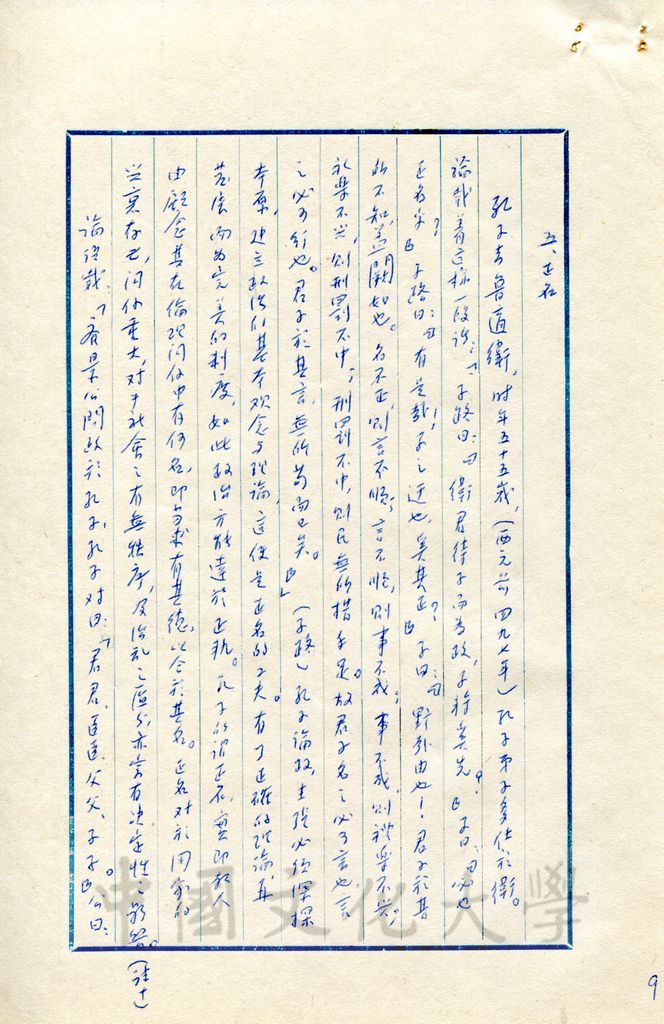 五、正名
孔子去魯適衛，时年五十五歲，（西元前四九七年）孔子弟子多仕於衛。
論載着這样一段话：「子路曰：『衛君待子而為政，子将奚先？』子曰：『必也
正名乎？』子路曰：『有是哉！子之迂也，奚其正？』子曰：『野哉由也！君子於其
所不知，盖闕如也。名不正，則言不順；言不順，則事不成；事不成，則禮樂不兴；
礼樂不兴，则刑罰不中；刑罰不中，则民無所措手足。故君子名之必可言也，言
之必可行也。君子於其言，無所苟而已矣。』」（子路）孔子論政，主張必须深探
本原，建立政治的基本观念与理論，這便是正名的工夫。有了正確的理論，再
落实而为完美的制度，如此政治方能達於正軌。孔子所谓正名，實即欲人
由顧念其在倫理关係中有何名，即当求有其德，以合於其名。正名对於国家的
兴衰存亡，关係重大，对于社会之有無秩序，及治乱之區分，亦富有决定性之影响。（註十）
論语载：「齊景公問政於孔子，孔子对曰：『君君、臣臣、父父、子子。』公曰：
9
中國文化大學